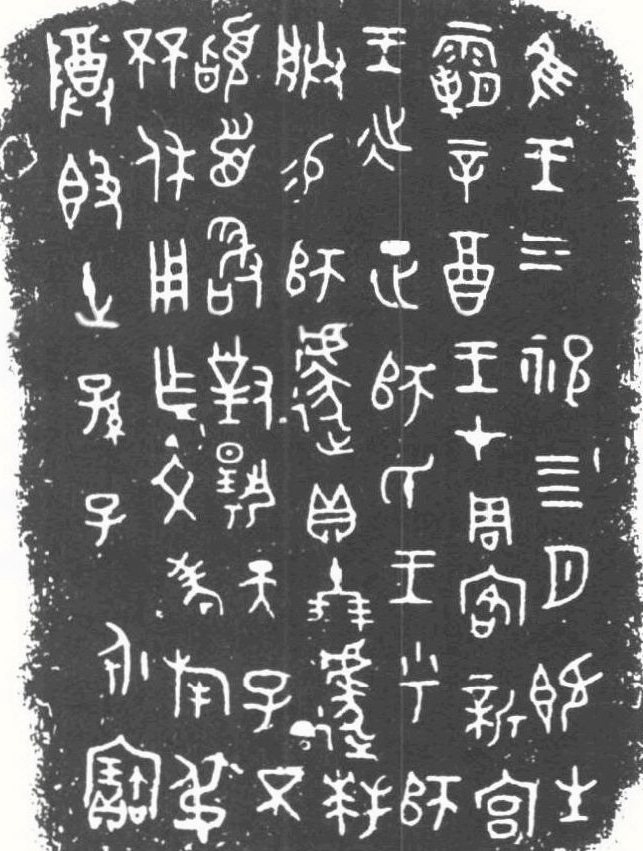 隹王三祀四月既生
霸辛酉王才周客新宮
王征正師氏王乎師
朕易師遽貝十朋遽拜
𩒨首敢對揚天子不
㔻休用乍文考旄弔
尊𣪘世孫子永寶